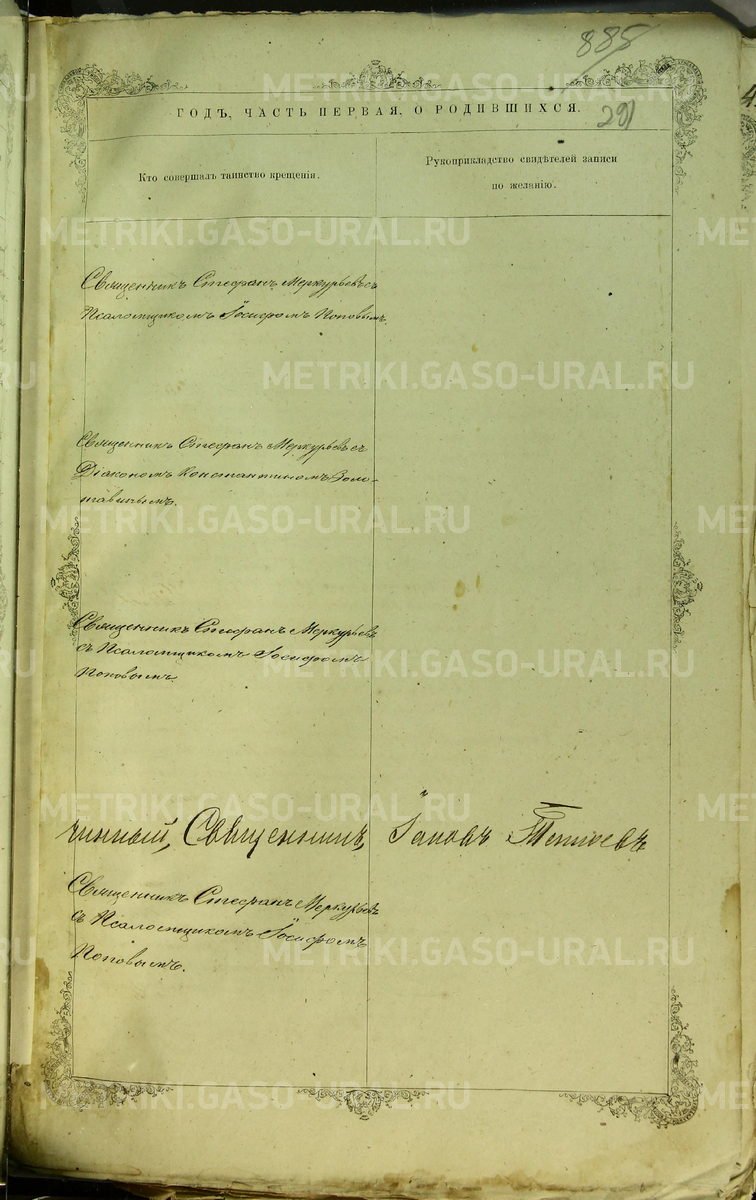 885
ГОДЪ, ЧАСТЬ ПЕРВАЯ, О РОДИВШИХСЯ.
291
Кто совершалъ таинство крещенія.
Рукоприкладство свидѣтелей записи
по желанію.
Священникъ Стефанъ Меркурьевъ съ
Псаломщикомъ Іосифомъ Поповымъ.
Священникъ Стефанъ Меркурьевъ съ
Діакономъ Константиномъ Золо-
тавинымъ.
Священникъ Стефанъ Меркурьевъ
съ Псаломщикомъ Іосифомъ
Поповымъ.
чинный, Священникъ, Іаковъ
Священникъ Стефанъ Меркурьевъ
съ Псаломщикомъ Іосифомъ
Поповымъ.
METRIKI.GASO-URAL.RU